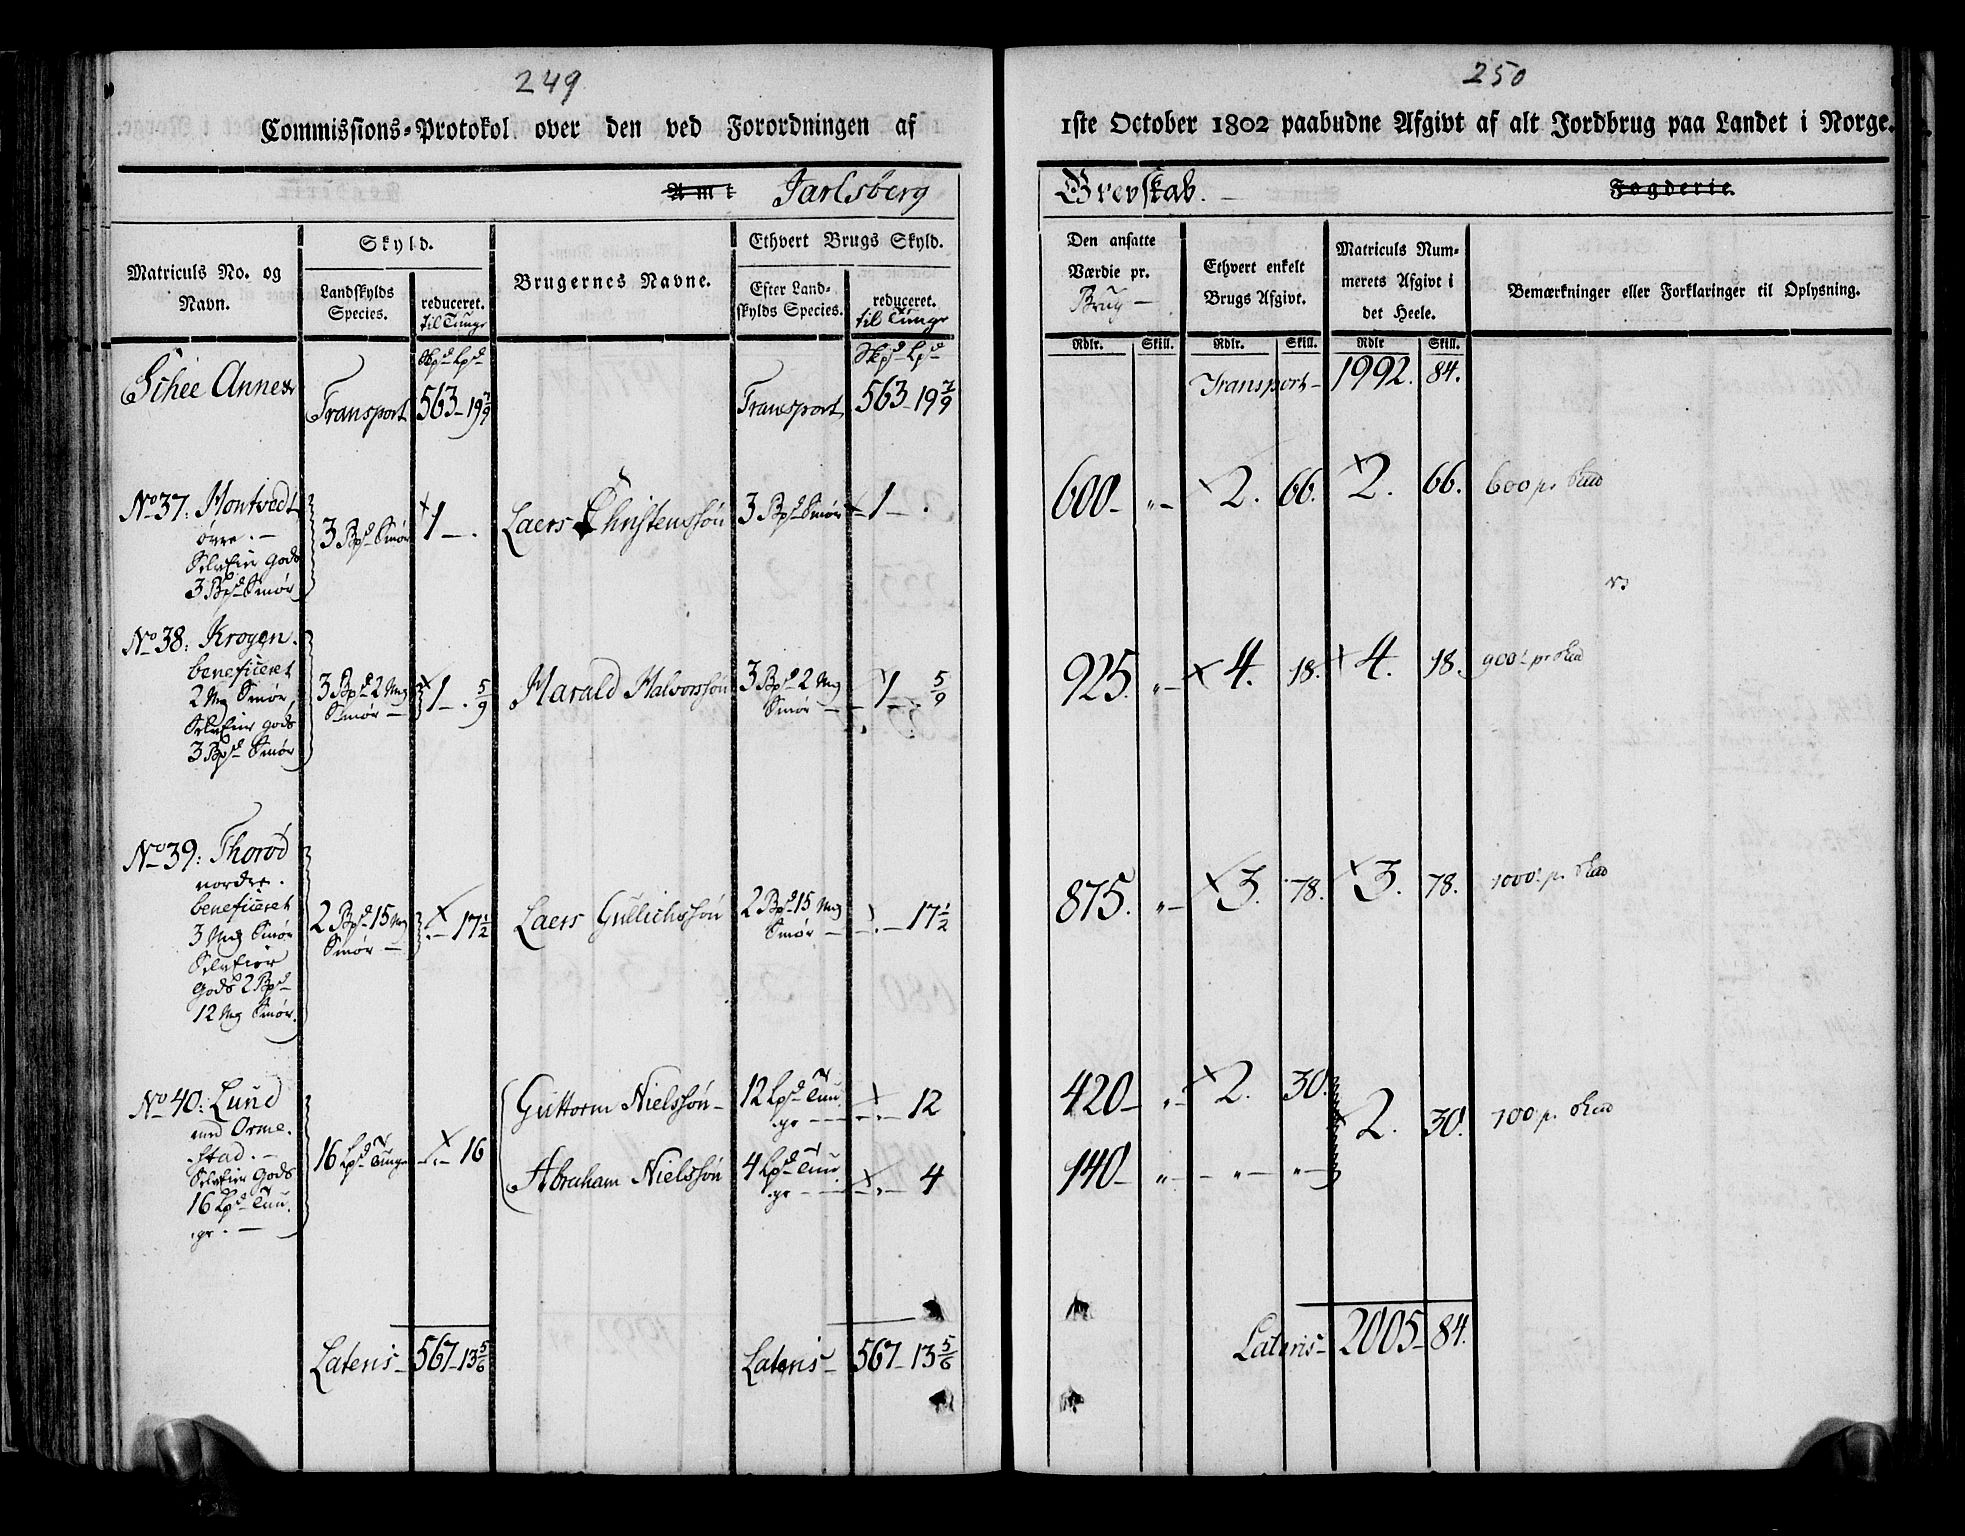 249
Commissions-Protokol over den ved Forordningen af
Amt Jarlsberg
Matriculs No. og Navn.
Skyld.
Landskylds Species.
reduceret. til Tunge
Brugernes Navne.
Ethvert Brugs Skyld.
Efter Landskylds Species.
reduceret. til Tunge
Skpd Lpd
Skpd Lpd
Schee Annex
Transport 563 - 19 7/9
Transport 563 - 19 7/9
No 37: Hontvedt
øvre. -
Selveier Gods
3 Bpd Smør
3 Bpd Smør 1 - .
Laers Christenssøn
3 Bpd Smør 1 - .
No 38: Krogen.
beneficeret
2 Mg Smør,
Selveier Gods
3 Bpd Smør
3 Bpd 2 Mg
Smør - 1 - . 5/9
Harald Halvorssøn
3 Bpd 2 Mg
Smør - 1 - . 5/9
No 39: Thorød
nordre.
beneficeret
3 Mg Smør
Selveier
Gods 2 Bpd
12 Mg Smør.
2 Bpd 15 Mg
Smør - . - 17 1/2
Laers Gullichssøn
2 Bpd 15 Mg
Smør - . - 17 1/2
No 40: Lund
med Orme-
stad. -
Selveier Gods
16 Lpd Tun-
ge. -
16 Lpd Tunge . - 16
Guttorm Nielssøn -
12 Lpd Tun-
ge - . - 12
Abraham Nielssøn
4 Lpd Tun-
ge - . - 4
Lateris - 567 - 13 5/6
Lateris - 567 - 13 5/6
250
1ste October 1802 paabudne Afgivt af alt Jordbrug paa Landet i Norge.
Grevskab. - Fogderie.
Den ansatte Værdie pr. Brug -
Ethvert enkelt Brugs Afgivt.
Matriculs Nummerets Afgivt i det Heele.
Bemærkninger eller Forklaringer til Oplysning.
Rdlr. Skill. Rdlr. Skill. Rdlr Skill.
Transport - 1992. 84.
600 - „ - 2. 66. 2. 66. 600 pr
925. „ - 4. 18. 4. 18. 900 pr
875. „ - 3. 78. 3. 78. 1000 pr
420 - „ - 2. 30. 2. 30. 700 pr
140 - „ - - „ - „ -
Lateris - 2005 - 84.